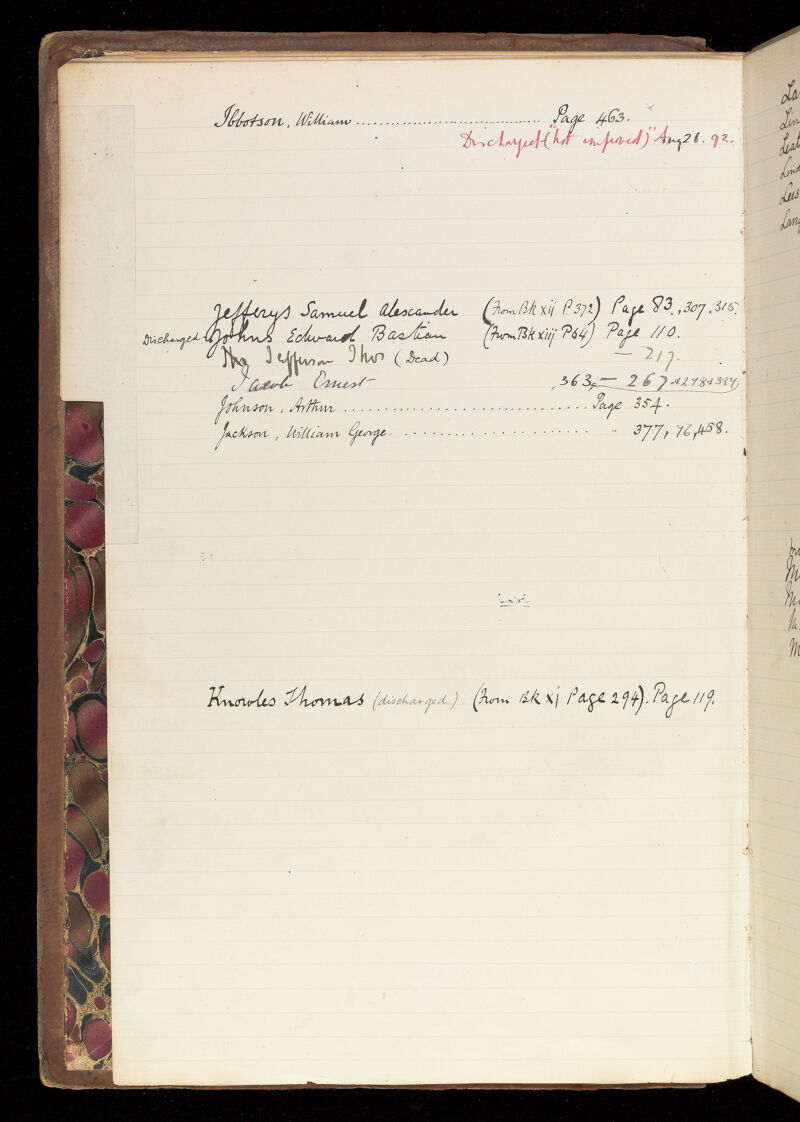 Ibbotson, William .................................... Page 463.
Discharged ("not improved") Aug 26. 92.
Jefferys Samuel Alexander (From Bk xij P. 372) Page 83., 307, 315.
Discharged Johns Edward Bastian (From Bk xiij P 54) Page 110.
Jefferson Thos (Dead) — 217.
Jacob Ernest 363, — 267
Johnson, Arthur .................................... Page 354.
Jackson, William George .................... " 377, 76, 458.
Knowles Thomas (discharged.) (From Bk xj Page 294). Page 119.
La
Lin
Leat
Lind
Lees
Lang